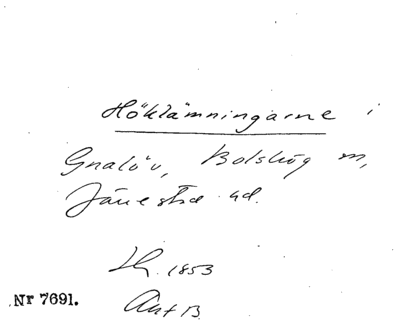 Höklämningarne i
Gnalöv, Bolshög m,
Järrestad hd.
Lh. 1853
Nr 7691.
Ant B